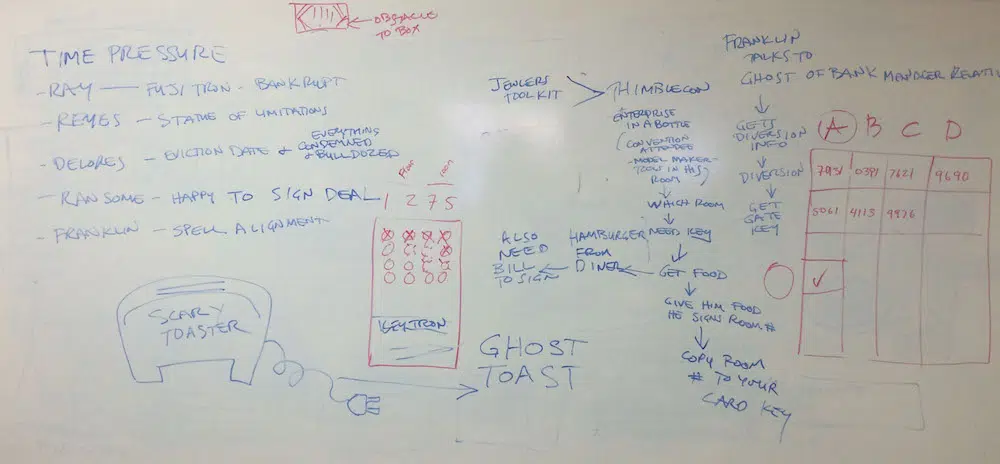 OBSTACLE
TO BOX
TIME PRESSURE
- RAY — FUJITRON - BANKRUPT
- REYES - STATUE OF LIMITATIONS
- DELORES - EVICTION DATE & EVERYTHING
CONDEMNED
& BULLDOZED
- RANSOME - HAPPY TO SIGN DEAL
- FRANKLIN - SPELL ALIGNMENT
FLOOR
ROOM
1 2 7 5
KEYTRON
SCARY
TOASTER
GHOST
TOAST
JEWLERS
TOOLKIT
THIMBLECON
ENTERPRISE
IN A BOTTLE
(CONVENTION
ATTENDEE
- MODEL MAKER -
ROOM)
WHICH ROOM
NEED KEY
GET FOOD
HAMBURGER
FROM
DINER
ALSO
NEED
BILL
TO SIGN
GIVE HIM FOOD
HE SIGNS ROOM #
COPY ROOM
# TO YOUR
CARD KEY
FRANKLIN
TALKS TO
GHOST OF BANK MANAGER RELATIVE
GETS
DIVERSION
INFO
DIVERSION
GET
GATE
KEY
A B C D
7931 0391 7621 9690
5061 4113 9976